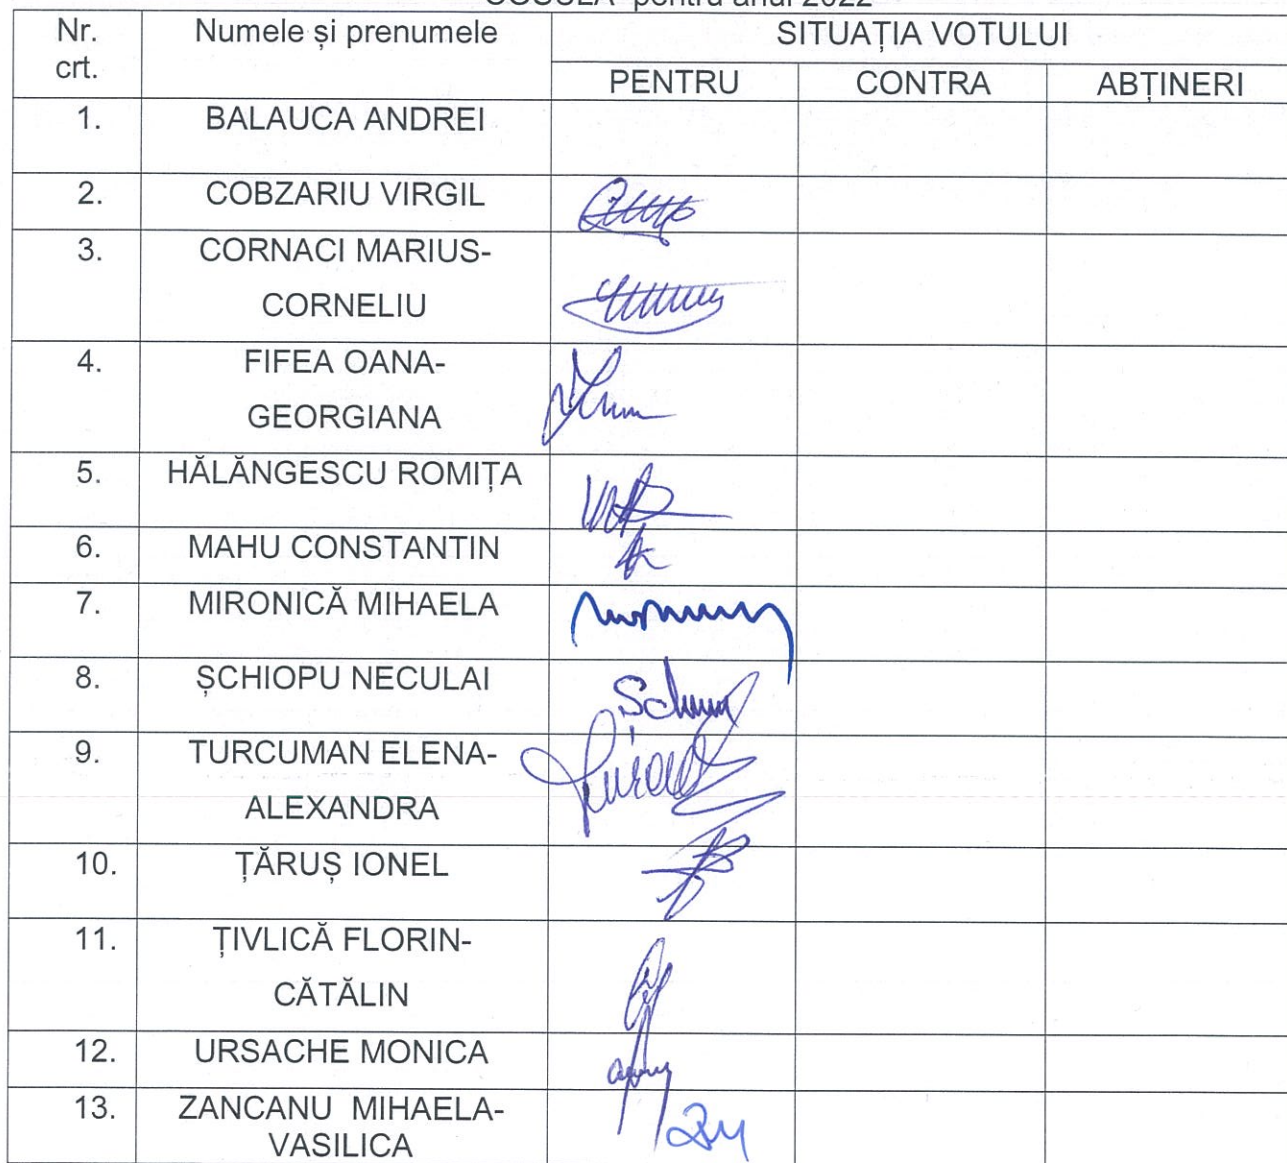 pentru anul 2022
Nr. crt. Numele și prenumele SITUAȚIA VOTULUI
PENTRU CONTRA ABȚINERI
1. BALAUCA ANDREI
2. COBZARIU VIRGIL
3. CORNACI MARIUS-
CORNELIU
4. FIFEA OANA-
GEORGIANA
5. HĂLĂNGESCU ROMIȚA
6. MAHU CONSTANTIN
7. MIRONICĂ MIHAELA
8. ȘCHIOPU NECULAI
9. TURCUMAN ELENA-
ALEXANDRA
10. ȚĂRUȘ IONEL
11. ȚIVLICĂ FLORIN-
CĂTĂLIN
12. URSACHE MONICA
13. ZANCANU MIHAELA-
VASILICA